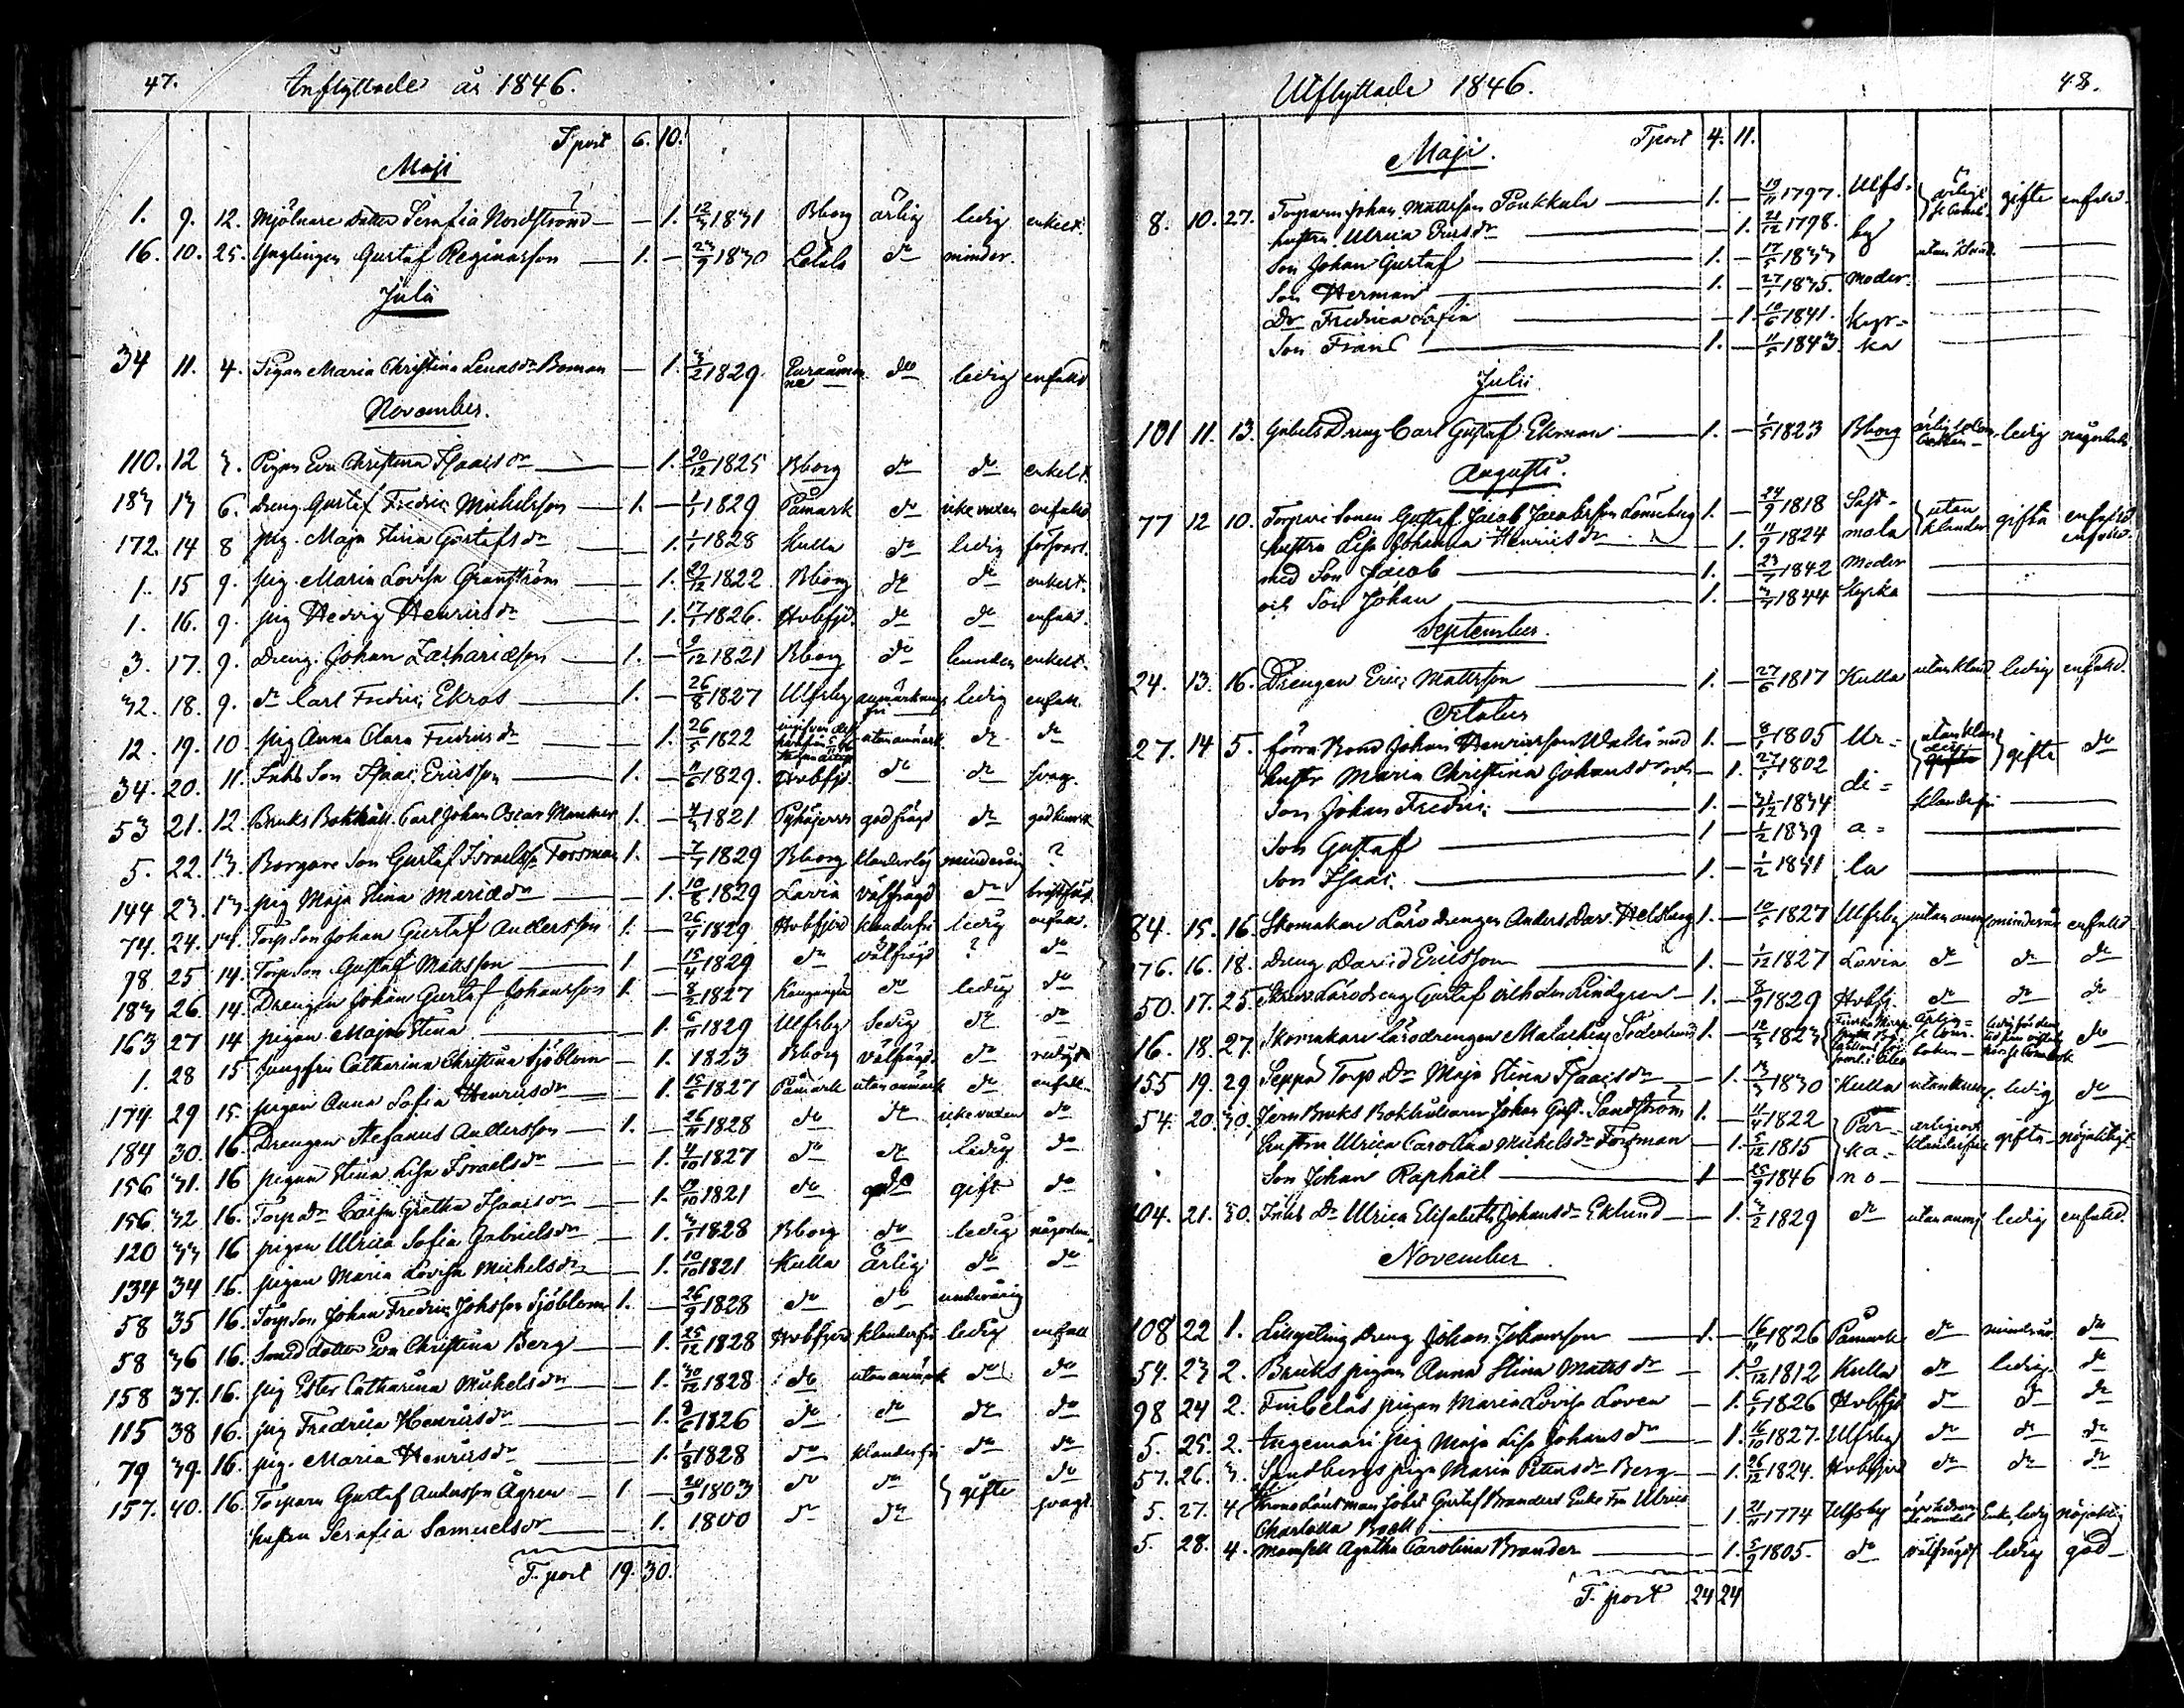 47. Inflyttade år 1846.
Tport 6. 10.
Maji
1. 9. 12. Mjölnare Dotter Serafia Nordström — 1. 12/3 1831 Bborg ärlig ledig enkelt.
16. 10. 25. Ynglingen Gustaf Reginasson 1. — 23/9 1830 Letala do minder.
Julii
34 11. 4. Pigan Maria Christina Lenasdr Boman — 1. 3/2 1829. do ledig enfald
November.
110. 12 3. Pigan Eva Christina Isaacsdr — 1. 20/12 1825 Bborg do do enkelt.
183 13 6. Dreng Gustaf Fredric Michelsson 1. — 1/1 1829 Påmark do icke vuxen enfald
172. 14 8 pig. Maja Stina Gustafsdr — 1. 1/1 1828 Kulla do ledig försvarl.
1. 15 9. pig. Maria Lovisa Granström — 1. 22/12 1822. Bborg do do enkelt.
1. 16. 9. pig Hedvig Henricsdr — 1. 17/1 1826. Hvbfjd. do do enfald.
3. 17. 9. Dreng. Johan Zachariæson 1. — 9/12 1821 Bborg do bunden enkelt.
32. 18. 9. do Carl Fredric Ekros 1. — 26/8 1827 Ulfsby anmärknings fri ledig enfald.
12. 19. 10 pig Anna Clara Fredricsdr — 1. 26/5 1822 utan anmärk do do
34. 20. 11. Inhs Son Isaac Ericsson 1. — 11/6 1829. Hvbfjd. do do svag.
53 21. 12. Bruks Bokhåll. Carl Johan Oscar 1. — 4/3 1821 Pyhäjerwi god frägd do god kunsk
5. 22. 13. Borgare Son Gustaf Israelsson Forsman 1. — 7/7 1829 Bborg klanderlös minderårig ?
144 23. 13. pig Maja Stina Mariædr — 1. 10/8 1829 Lavia välfrägd do bristfäl.
74. 24. 14. Torp Son Johan Gustaf Andersson 1. — 26/4 1829. Hvbfjerd klanderfri ledig enfald.
98. 25 14. Torp. Son Gustaf Mattsson 1. — 15/4 1829 do välfrägd ? do
183 26 14. Drengen Johan Gustaf Johansson 1. — 8/2 1827 do ledig do
163 27 14 pigan Maja Stina — 1. 6/11 1829 Ulfsby Sedig do do
1. 28 15 Jungfru Catharina Christina Sjöblom — 1. 1823 Bborg välfrägd. do
174 29 15. pigan Anna Sofia Henricsdr — 1. 15/6 1827 Påmark utan anmärk do enfald.
184 30. 16. Drengen Stefanus Andersson 1. — 26/11 1828 do do icke vuxen do
156 31. 16 pigan Stina Lisa Israelsdr — 1. 4/10 1827 do do ledig do
156 32 16. Torp dr Caisa Gretha Isaacsdr — 1. 19/10 1821 do do gift do
120 33 16 pigan Ulrica Sofia Gabrielsdr — 1. 3/1 1828 Bborg do ledig någorlun.
134 34 16. pigan Maria Lovisa Michelsdr — 1. 10/10 1821 Kulla Ärlig do do
58 35 16. Torp Son Johan Fredric Johsson Sjöblom 1. — 26/9 1828 do do underårig
58 36 16. Smed dotter Eva Christina Berg — 1. 25/12 1828 Hvbfjerd klanderfri ledig enfald
158 37. 16. pig Ester Catharina Michelsdr — 1. 30/12 1828 do utan anmärk do do
115 38 16. pig Fredrica Henricsdr — 1. 8/6 1826 do do do do
79 39. 16. pig. Maria Henricsdr — 1. 1/8 1828 do klanderfri do do
157. 40. 16. Torparn Gustaf Andersson Ågren 1 — 20/9 1803 do do gifte do
hustru Serafia Samuelsdr — 1. 1800 do do svagt.
T. port 19. 30.
Utflyttade 1846. 48.
Tport 4. 11.
Maji.
8. 10. 27. Torparen Johan Mattsson Paukkula 1. — 19/11 1797. Ulfs- ärligt gifte enfald.
hustru Ulrica Ericsdr — 1. 21/12 1798. by
Son Johan Gustaf 1. — 17/5 1833 utan kland.
Son Herman 1. — 27/1 1835. Moder-
Dr Fredrica Sofia — 1. 10/6 1841. kyr-
Son Frans 1. — 11/5 1843. ka
Julii
101 11. 13. Gubels Dreng Carl Gustaf Ekman 1. — 1/5 1823 Bborg ledig någorlunda
Augusti.
77 12 10. Torpare Sonen Gustaf Jacob Jacobsson Lönneberg 1. — 24/9 1818 Sast- utan gifta enfald
hustru Lisa Johanna Henricsdr — 1. 11/9 1824 mola klander enfald.
med Son Jacob 1. — 23/7 1842 Moder
och Son Johan 1. — 3/7 1844 kyrka
September.
24. 13. 16. Drengen Eric Mattsson 1. — 27/6 1817 Kulla utan kland ledig enfald.
October
27. 14 5. förra Bond Johan Henricsson 1. — 8/1 1805 Ur- utan klan gifte do
hustr Maria Christina Johansdr och — 1. 27/1 1802 di-
Son Johan Fredric 1. — 31/12 1834 klanderfri
Son Gustaf 1 — 1/2 1839 a-
Son Isaac 1. — 1/2 1841 la
84. 15. 16. Skomakare Lärodrengen Anders Dav. Hellberg 1. — 10/5 1827 Ulfsby utan anm minderår enfald
76. 16. 18. Dreng David Ericsson 1. — 1/12 1827 Lavia do do do
50. 17. 25. Lärodreng Gustaf Vilhelm Lindgren 1. — 8/9 1829 Hvbfj. do do do
16. 18. 27. Skomakare lärodrengen Malachias Söderlund 1. — 12/3 1823 do
155 19. 29 Seppä Torp. Dr Maja Stina Isaacsdr — 1. 13/3 1830 Kulla ledig do
54. 20. 30. Jern Bruks Bokhållaren Johan Gust. Sandström 1. — 11/4 1822 Pår- ärlig och gifta nöjaktigt
hustru Ulrica Carolina Michelsdr Forsman — 1. 5/12 1815 ka- klanderfri
Son Johan Raphael 1 — 25/9 1846 no-
104. 21. 30. Inhs Dr Ulrica Elisabeth Johansdr Eklund — 1. 3/2 1829 do utan anm ledig enfald.
November
108 22 1. Dreng Johan Johansson 1. — 16/11 1826 Påmark do minderår. do
54. 23 2. Bruks pigan Anna Stina Mattsdr — 1. 9/12 1812 Kulla do ledig. do
98 24 2. pigan Maria Lovisa Loven — 1. 6/5 1826 Hvbfjd do do do
5. 25. 2. Ingemari pig Maja Lisa Johansdr — 1. 16/10 1827. Ulfsby do do do
57. 26. 3. Sandbergs piga Maria Petersdr Berg — 1. 26/12 1824. Hvbfjerd do do do
5. 27. 4. Kronolänsman Gustaf Branders Enka Fru Ulrica
Charlotta — 1. 21/11 1774 Ulfsby Enka, ledig nöjaktig
5. 28. 4. Mamsell Agatha Carolina Brander — 1. 5/9 1805. do välfrägd ledig god
T. port 24 24